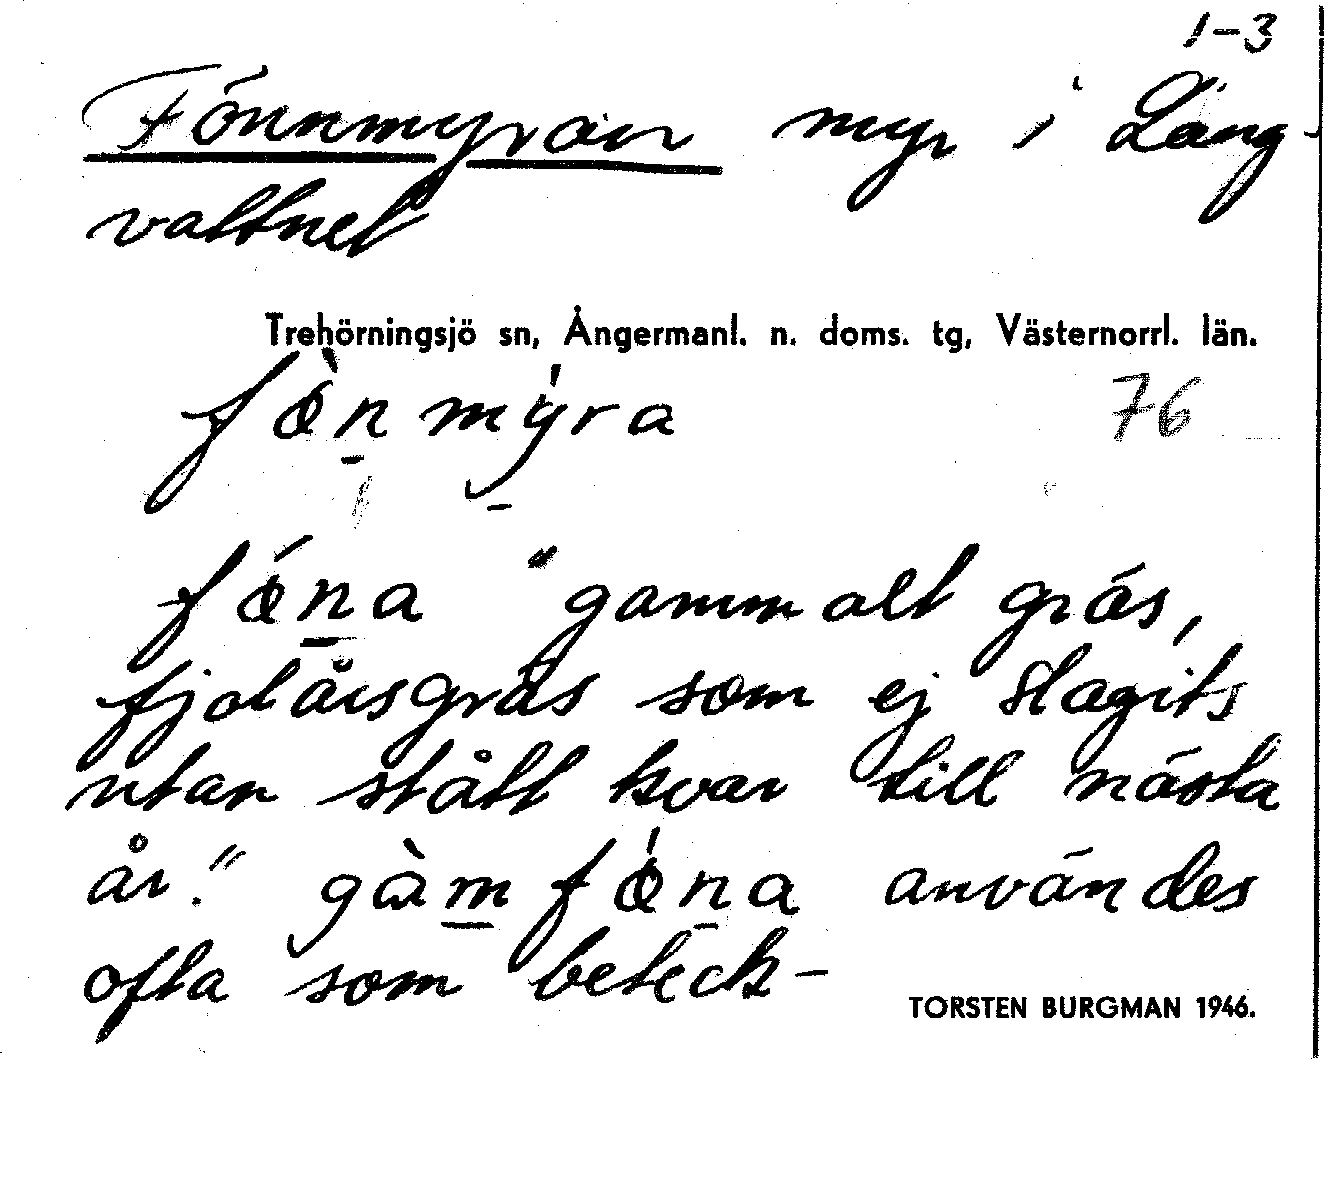 1-3
Fönnmyran myr i Lång-
vattnet
Trehörningsjö sn, Ångermanl. n. doms. tg, Västernorrl. län.
fø̀n mýra 76
fǿna "gammalt gräs,
fjolårsgräs som ej slagits
utan stått kvar till nästa
år." gàm fǿna användes
ofta som beteck-
TORSTEN BURGMAN 1946.